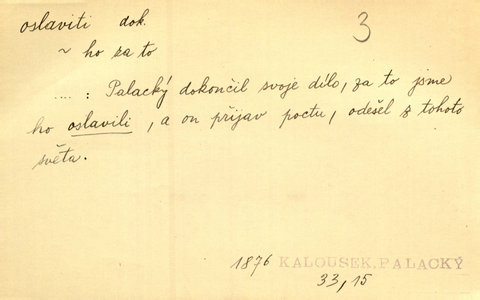 oslaviti dok.
3
~ ho za to
.... : Palacký dokončil svoje dílo, za to jsme
ho oslavili, a on přijav poctu, odešel z tohoto
světa.
1876 KALOUSEK, PALACKÝ
33, 15